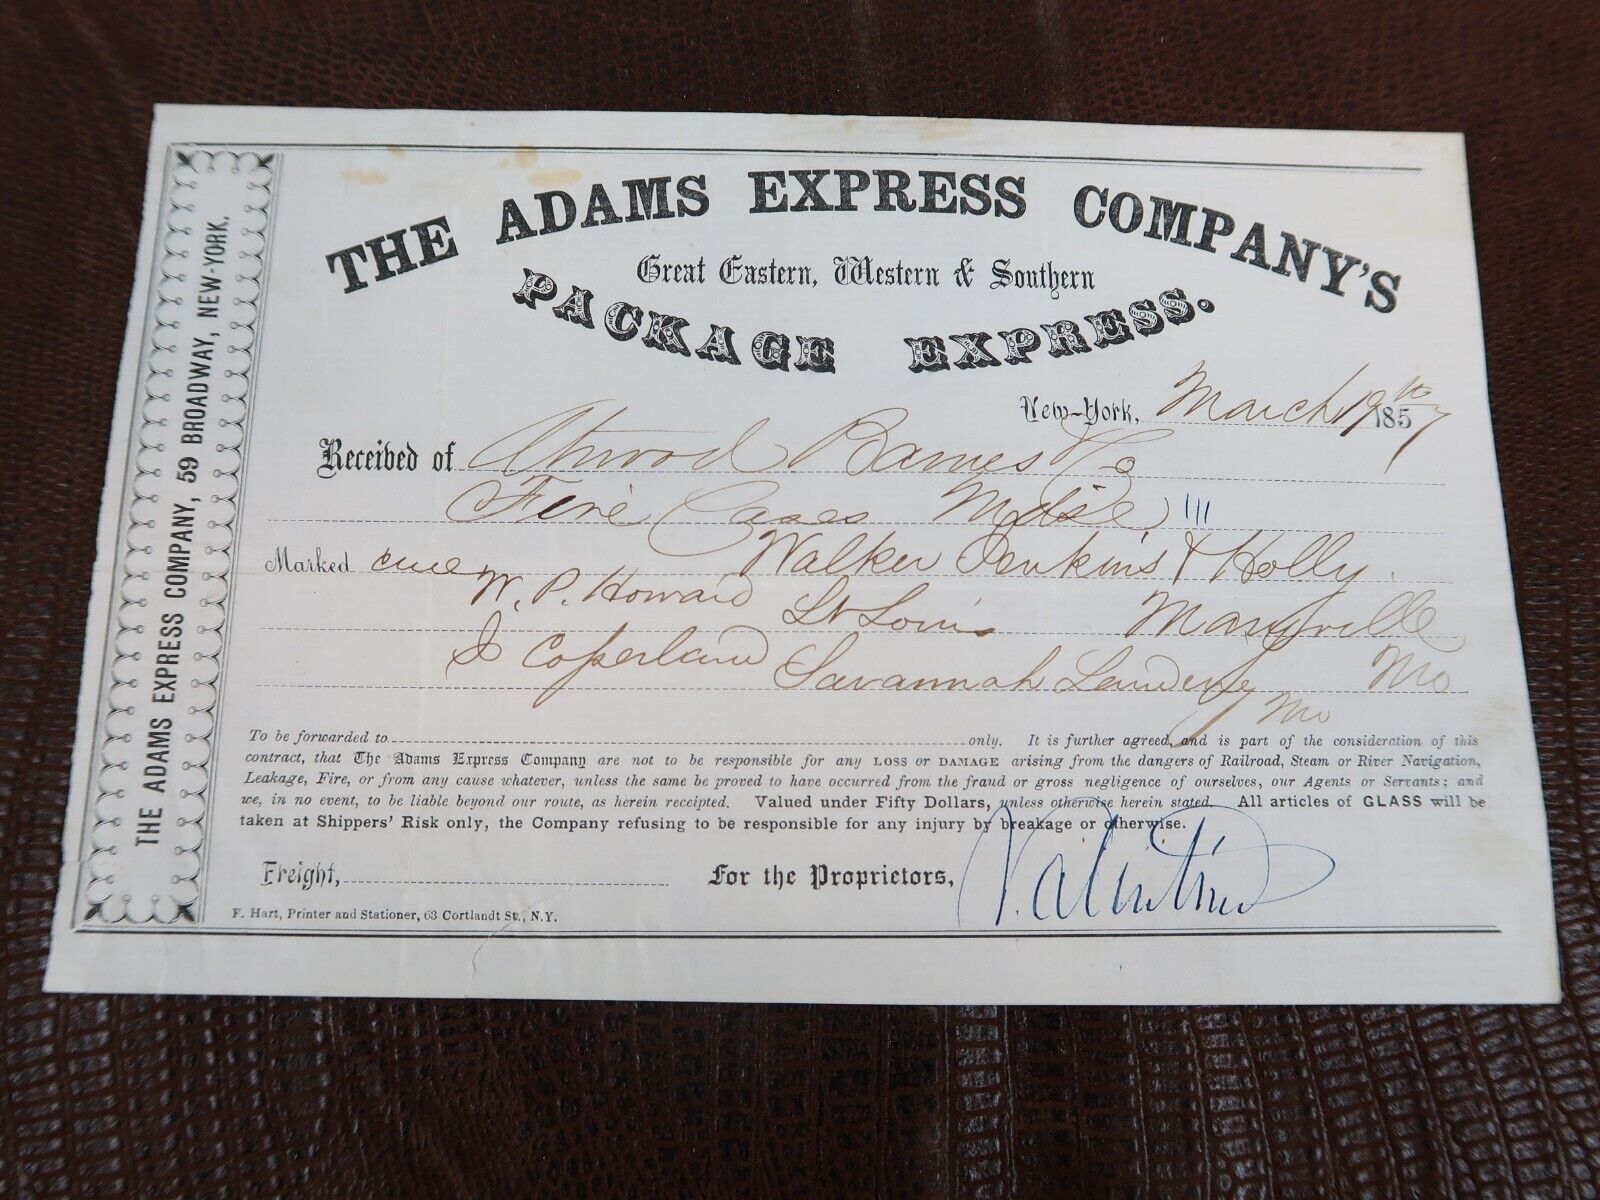 THE ADAMS EXPRESS COMPANY, 59 BROADWAY, NEW-YORK.
THE ADAMS EXPRESS COMPANY'S
Great Eastern, Western & Southern
PACKAGE EXPRESS.
New-York, March 19th 1857
Received of Atwood Barnes & Co
Five Cases Mdse
Marked Walker Jenkins & Holly.
W. P. Howard St Louis Maryville
Mo
Coperland Savannah Landing
Mo
To be forwarded to only. It is further agreed, and is part of the consideration of this
contract, that The Adams Express Company are not to be responsible for any LOSS or DAMAGE arising from the dangers of Railroad, Steam or River Navigation,
Leakage, Fire, or from any cause whatever, unless the same be proved to have occurred from the fraud or gross negligence of ourselves, our Agents or Servants; and
we, in no event, to be liable beyond our route, as herein receipted. Valued under Fifty Dollars, unless otherwise herein stated. All articles of GLASS will be
taken at Shippers' Risk only, the Company refusing to be responsible for any injury by breakage or otherwise.
Freight, For the Proprietors,
F. Hart, Printer and Stationer, 63 Cortlandt St., N.Y.